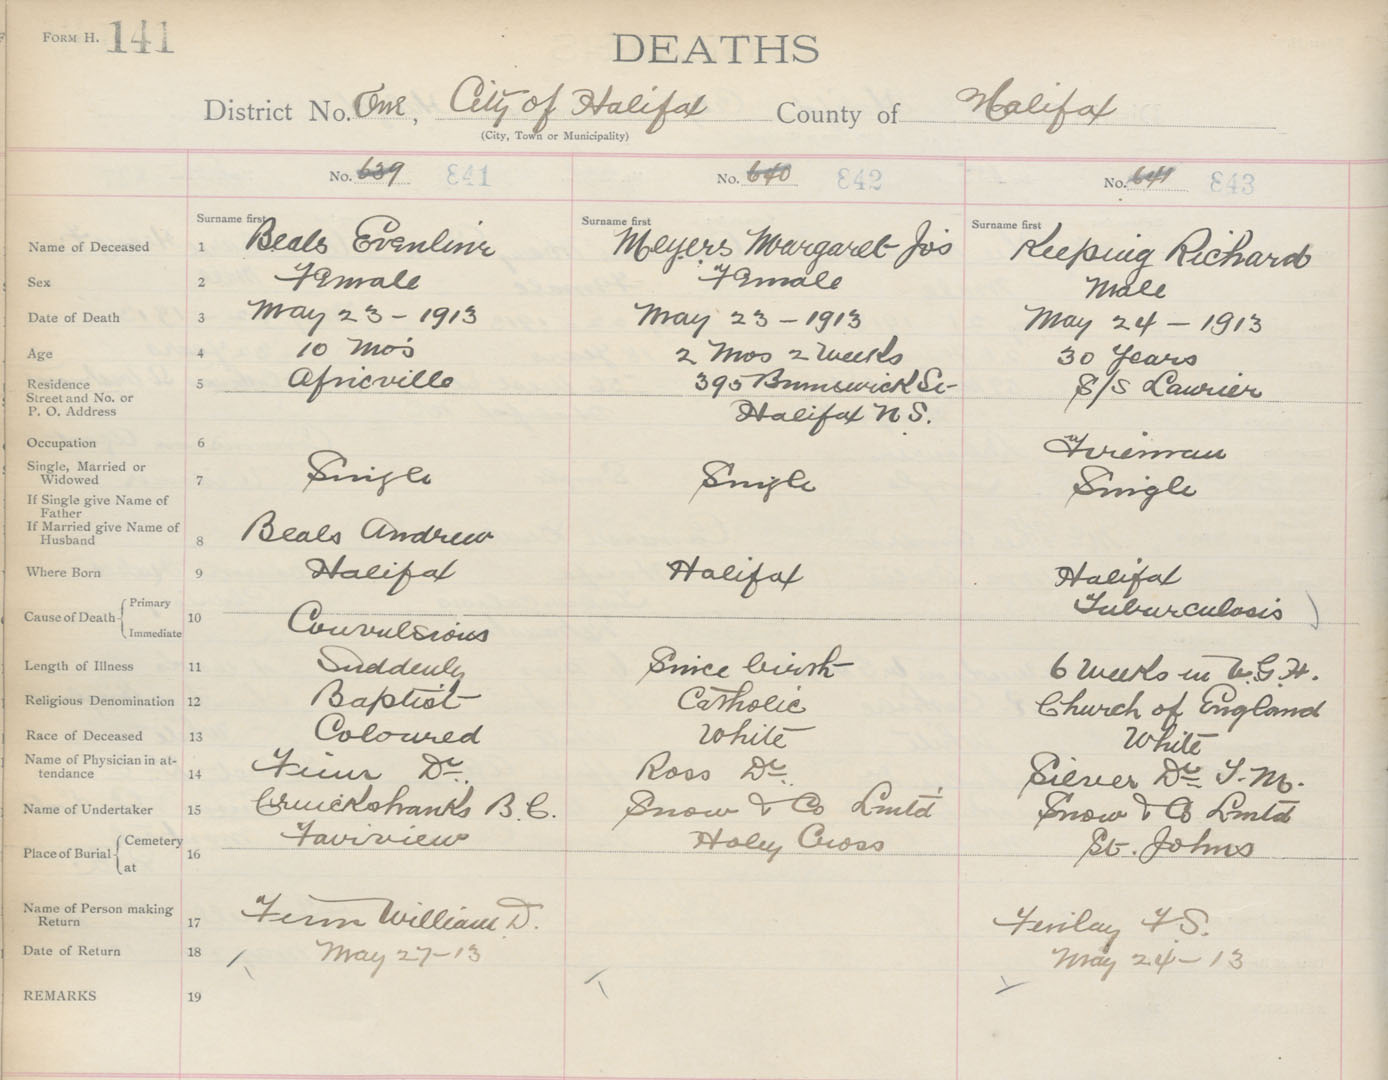 FORM H. 141
DEATHS
District No. One, City of Halifax County of Halifax
(City, Town or Municipality)
No. 639 841 No. 640 842 No. 641 843
Surname first Surname first Surname first
Name of Deceased 1 Beals Evenline Meyers Margaret Jos Keeping Richard
Sex 2 Female Female Male
Date of Death 3 May 23 - 1913 May 23 - 1913 May 24 - 1913
Age 4 10 Mos 2 Mos 2 Weeks 30 Years
Residence 5 Africville 395 Brunswick St- S/S Laurier
Street and No. or
P. O. Address Halifax N S.
Occupation 6 Fireman
Single, Married or
Widowed 7 Single Single Single
If Single give Name of
Father
If Married give Name of
Husband 8 Beals Andrew
Where Born 9 Halifax Halifax Halifax
Cause of Death { Primary Tuburculosis
Immediate 10 Convulsions
Length of Illness 11 Suddenly Since birth 6 Weeks in V.G.H.
Religious Denomination 12 Baptist Catholic Church of England
Race of Deceased 13 Coloured White White
Name of Physician in at-
tendance 14 Finn Dr. Ross Dr. Silver Dr. T. M.
Name of Undertaker 15 Cruickshanks B. C. Snow & Co Lmtd Snow & Co Lmtd
Place of Burial { Cemetery Fairview Holy Cross St. Johns
at 16
Name of Person making
Return 17 Finn William D. Finlay F S.
Date of Return 18 May 27-13 May 24-13
REMARKS 19